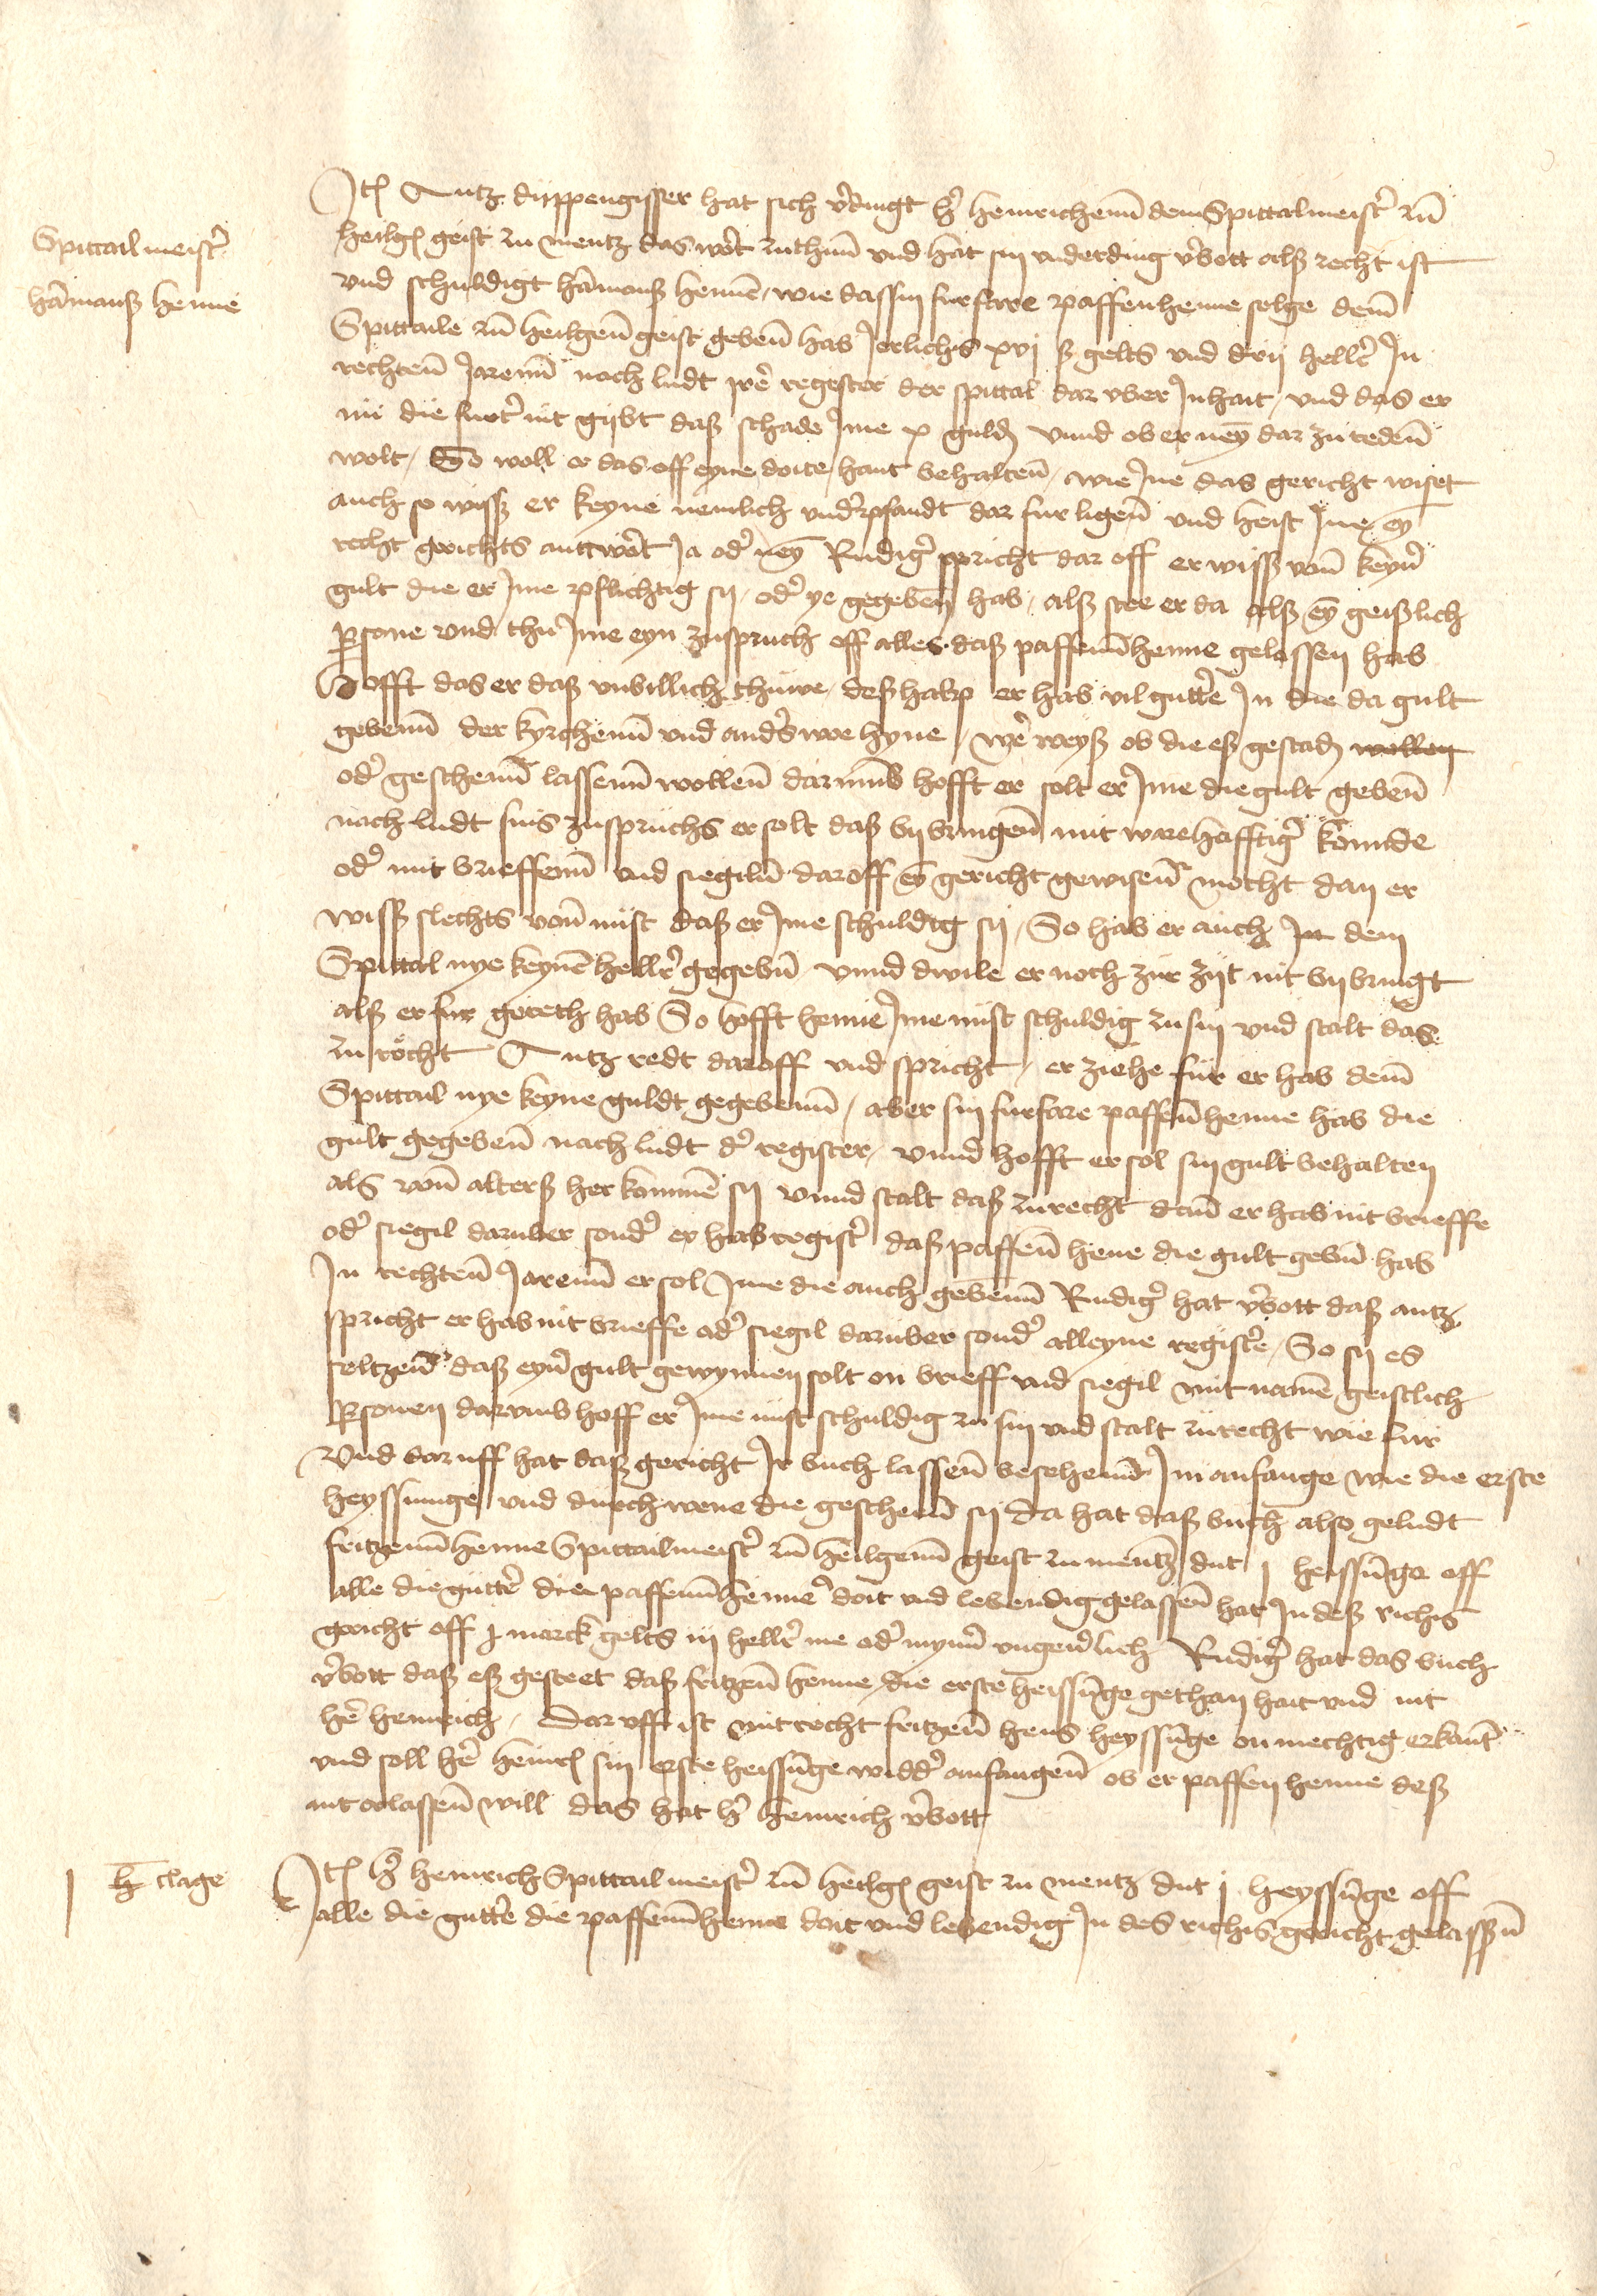 Spittail meist̉
ha̅manß henne
Jt̅ Antz duppengisser hat sich v̉dingt h̉ henrichen̅ dem Spittalmeist̉ zu̅
heilgē geist zu mentz das wo̅rt zuthun̅ vnd hat sin vnderding v̉bott alß recht ist
vnd schuldigt ha̅manß henne̅ / wie das sin furfare paffenhenne selge dem̅
Spittaile zu̅ heilgen̅ geist geben̅ hab Jerlichs xvj ß gelts vnd drij hell̉ Jn
rechten̅ Jaren̅ nach ludt ire̅ register der spittal dar vber Jnhait / vnd das er
im die furt̉ nit gijbt daß schade Jme x guld̅ vnnd ob er ney̅ dar zu reden̅
wolt / So woll er das off eyne doite hant behalten̅ / wie Jne das gericht wiset
auch so wiss er keyne nemlich vnd̉pfandt dar fur ligen̅ vnd heist Jne ey̅
recht gerichts anttwo̅rt Ja od̉ ney̅ Rudig̉ spricht dar off er wiss von̅ keyn̉
gult die er Jme pflichtig sij / od̉ ye gegeben hab / alß stee er da alß ey̅ geistlich
p̱sone vnd thu Jme eyn zuspruch off alles daß paffen̅henne gelassen hab
Hofft das er daß vnbillich thuwe / deßhalp er hab vil gutt̉e Jn die da gult
geben̅ der kyrchen̅ vnd and̉swoe hyne / we̅r weyß ob die eß gestad̅ wollen
od̉ geschen̅ lassen̅ wollen̅ darumb hofft er solt er Jme die gult geben̅
nach ludt sins zuspruchs er solt daß bij bringen̅ mit warehafftig̉ konnde
od̉ mit brieffen̅ vnd siegiln̅ dar off ey̅ gericht gewisen̅ mocht dan er
wiss slechts von̅ nust daß er Jme schuldig sij / So hab er auch Jn dem
Spittal nye keyne̅ hell̉ gegebn̅ vnnd dwile er noch zur zijt nit bij bringt
alß er fur gereth hab So hofft henne Jme nust schuldig zu sin vnd stalt das
zu recht Antz redt daroff vnd spricht / er ziehe fur er hab dem̅
Spittail nye keyne guldt gegeben̅ / aber sin furfare paffen̅henne hab die
gult gegeben̅ nach ludt d̉ register / vnnd hofft er sol sin gult behalten
als von̅ alterß her komme̅ sij vnnd stalt daß zu recht dan̅ er hab nit brieffe
od̉ siegil daruber sond̉ er hab regist̉ daß paffen̅ hene die gult gebn̅ hab
Jn rechten̅ Jaren̅ er sol Jme die auch geben̅ Rudig̉ hat v̉bott daß antz
spricht er hab nit brieffe od̉ siegil daruber sond̉ alleyne regist̉e / So sij es
seltzen̅ daß eyn̉ gult gewynnen solt on brieff vnd siegil mit name̅ geistlich
p̱sonen darumb hoff er Jme nust schuldig zu sin vnd stalt zu recht wie fur
Vnd dar uff hat daß gericht Jr buch lassen̅ besehen̅ Jm anfange wie die erste
heyssunge vnd durch wene die geschen̅ sij da hat daß buch also geludt
fritzen̅ henne Spittailmeist̉ zu̅ heilgen̅ geist zu mentz dut j heissu̅ge off
alle die gutt̉e die paffen̅henne doit vnd lebendig gelassen̅ hat Jn deß richis
gericht off j marck gelts iij hell̉ me od̉ mynn̉ vngeu̅lich Rudig̉ hat das buch
v̉bott daß eß gesteet daß fritzen̅ henne die erste heissu̅ge gethan hait vnd nit
h̉ henrich / Dar vff ist mit recht fritzen̅ hens heyssu̅ge onmechtig erkant̅
vnd soll h̉ henrc̅ sin erste heissu̅ge widd̉ anfangen̅ ob er paffen henne deß
nit erlassen̅ will das hat h̉ henrich v̉bott
j h̵ clage
Jt̅ h̉ henrich Spittailmeist̉ zu̅ heilgē geist zu mentz dut j heyssu̅ge off
alle die gutt̉e die paffen̅henne doit vnd lebendig Jn des richis gericht gelassen̅